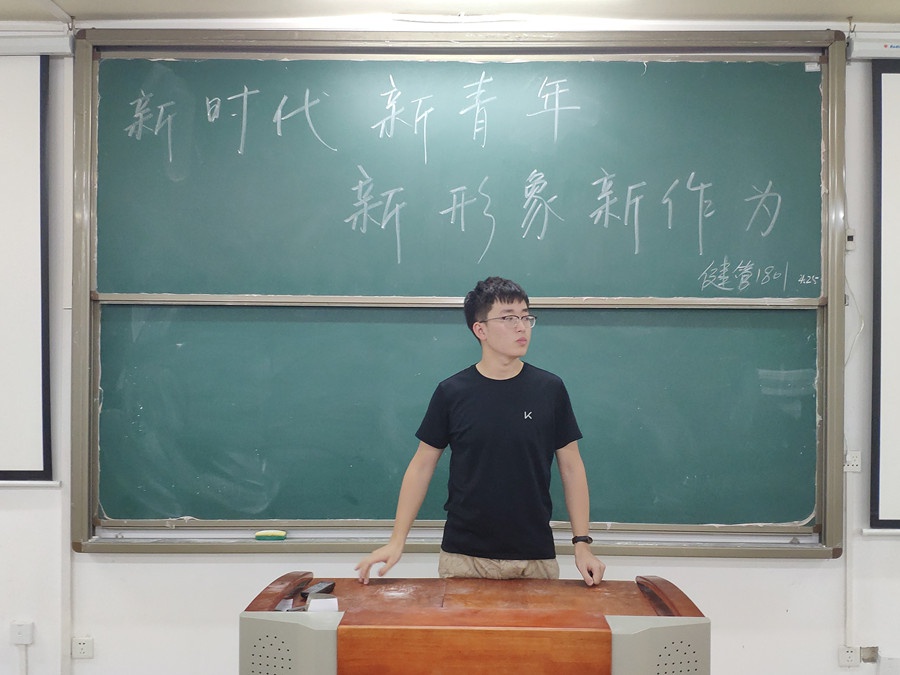 新时代 新青年
新形象新作为
健管1801 4.25
K